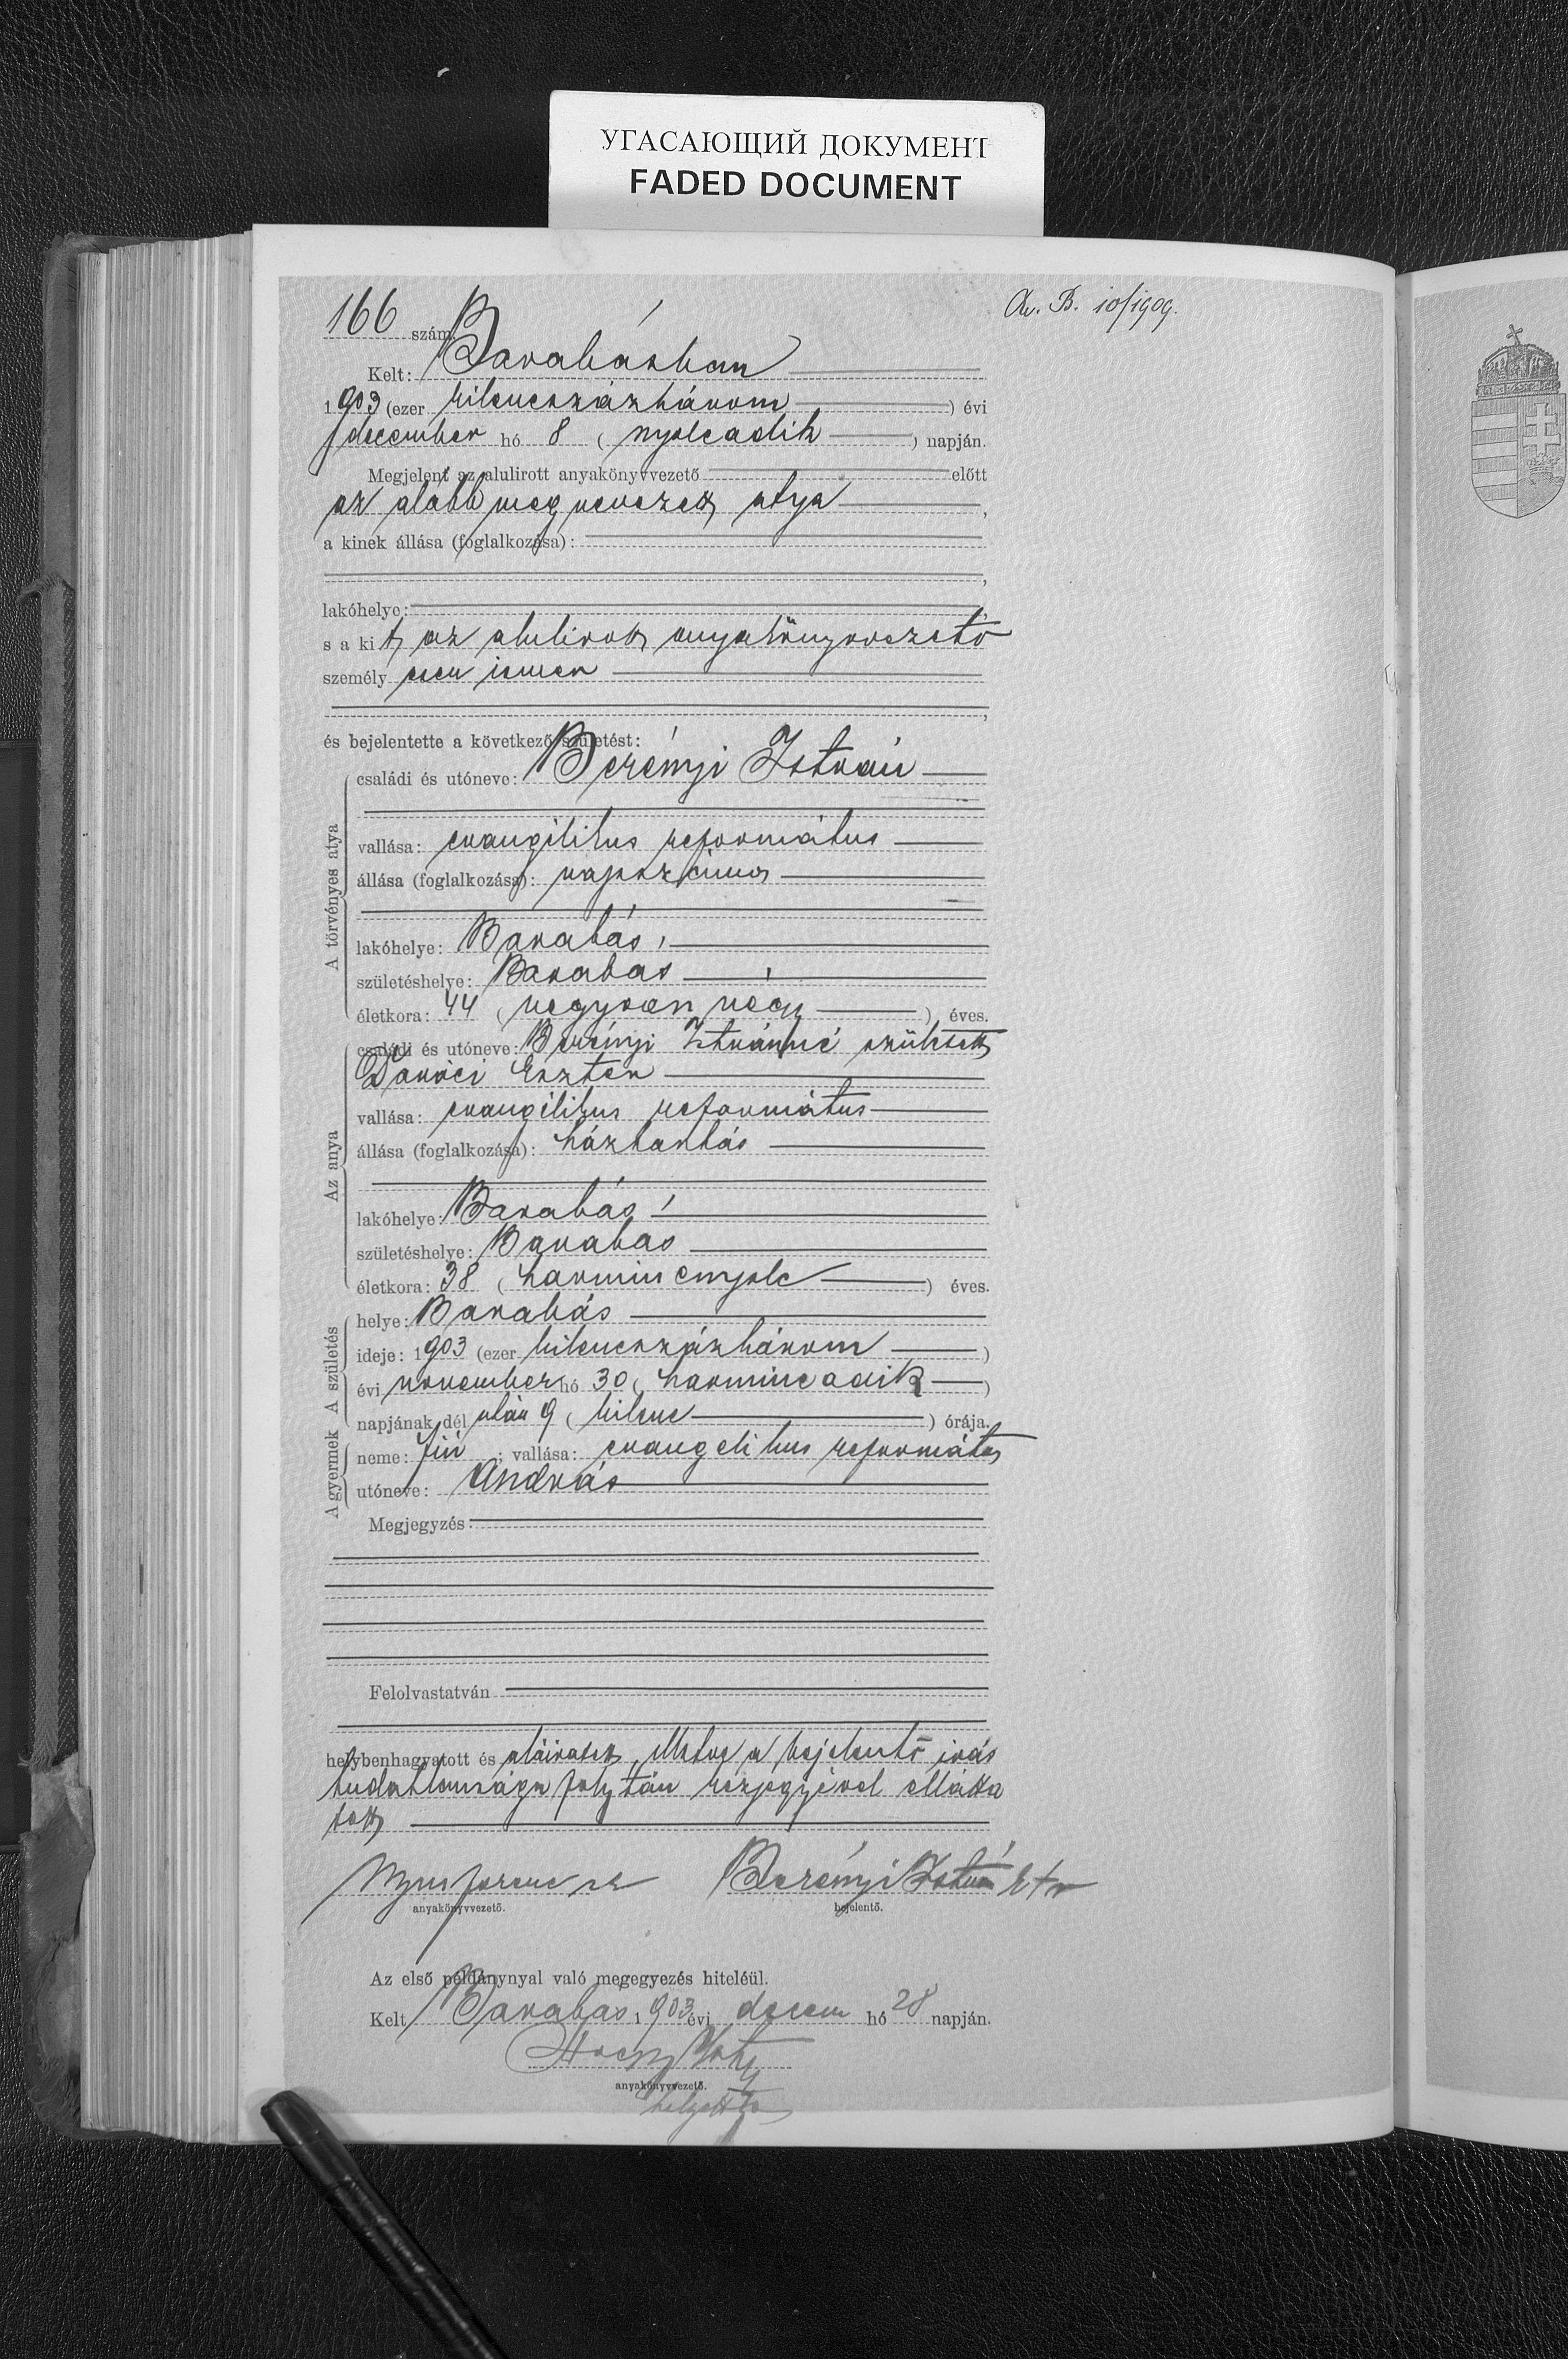 УГАСАЮЩИЙ ДОКУМЕНТ
FADED DOCUMENT
166 szám
B. 10/1909.
Kelt: Barabásban
1903 (ezer kilencszázhárom) évi
december hó 8 (nyolcadik) napján.
Megjelent az alulirott anyakönyvvezető előtt
az alább megnevezett atya,
a kinek állása (foglalkozása):
lakóhelye:
s a kit az alulirott anyakönyvvezető
személyesen ismer
és bejelentette a következő születést:
A törvényes atya
családi és utóneve: Berényi István
vallása: evangélikus református
állása (foglalkozása): napszámos
lakóhelye: Barabás,
születéshelye: Barabás
életkora: 44 (negyvennégy) éves.
Az anya
családi és utóneve: Berényi Istvánné született
Daróci Eszter
vallása: evangélikus református
állása (foglalkozása): háztartás
lakóhelye: Barabás
születéshelye: Barabás
életkora: 38 (harmincnyolc) éves.
A születés
helye: Barabás
ideje: 1903 (ezer kilencszázhárom)
évi november hó 30 (harmincadik)
napjának dél után 9 (kilenc) órája.
A gyermek
neme: fiú; vallása: evangelikus református
utóneve: András
Megjegyzés:
Felolvastatván
helybenhagyatott és aláiratott, illetve a bejelentő irás
tudatlansága folytán kézjegyével ellátta
tott
anyakönyvvezető.
Berényi István
bejelentő.
Az első példánynyal való megegyezés hiteléül.
Kelt Barabás 1903 évi decem hó 28 napján.
anyakönyvvezető.
helyettes